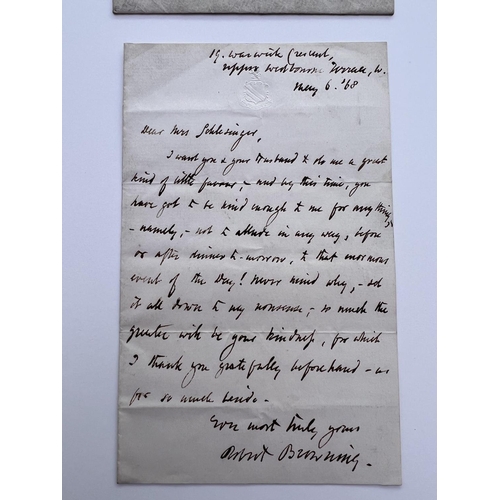 19. Warwick Crescent,
Upper Westbourne Terrace, W.
May 6. '68
Dear Mrs Schlesinger,
I want you & your Husband to do me a great
kind of little favour, – and by this time, you
have got to be kind enough to me for anything,
– namely, – not to allude in any way, before
or after dinner to-morrow, to that enormous
event of the Day! Never mind why, – set
it all down to my nonsense, – so much the
greater will be your kindness, for which
I thank you gratefully beforehand – as
for so much beside –
Ever most truly yours
Robert Browning.